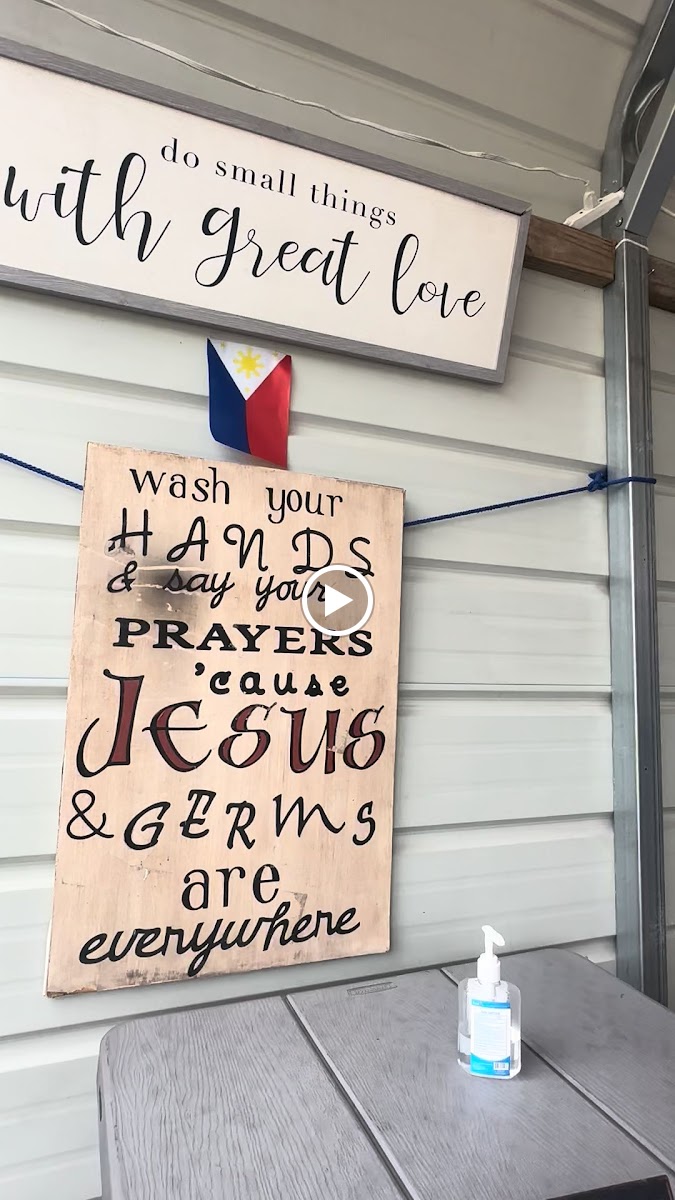 do small things
with great love
wash your
HANDS
& say your
PRAYERS
'cause
JESUS
& GERMS
are
everywhere